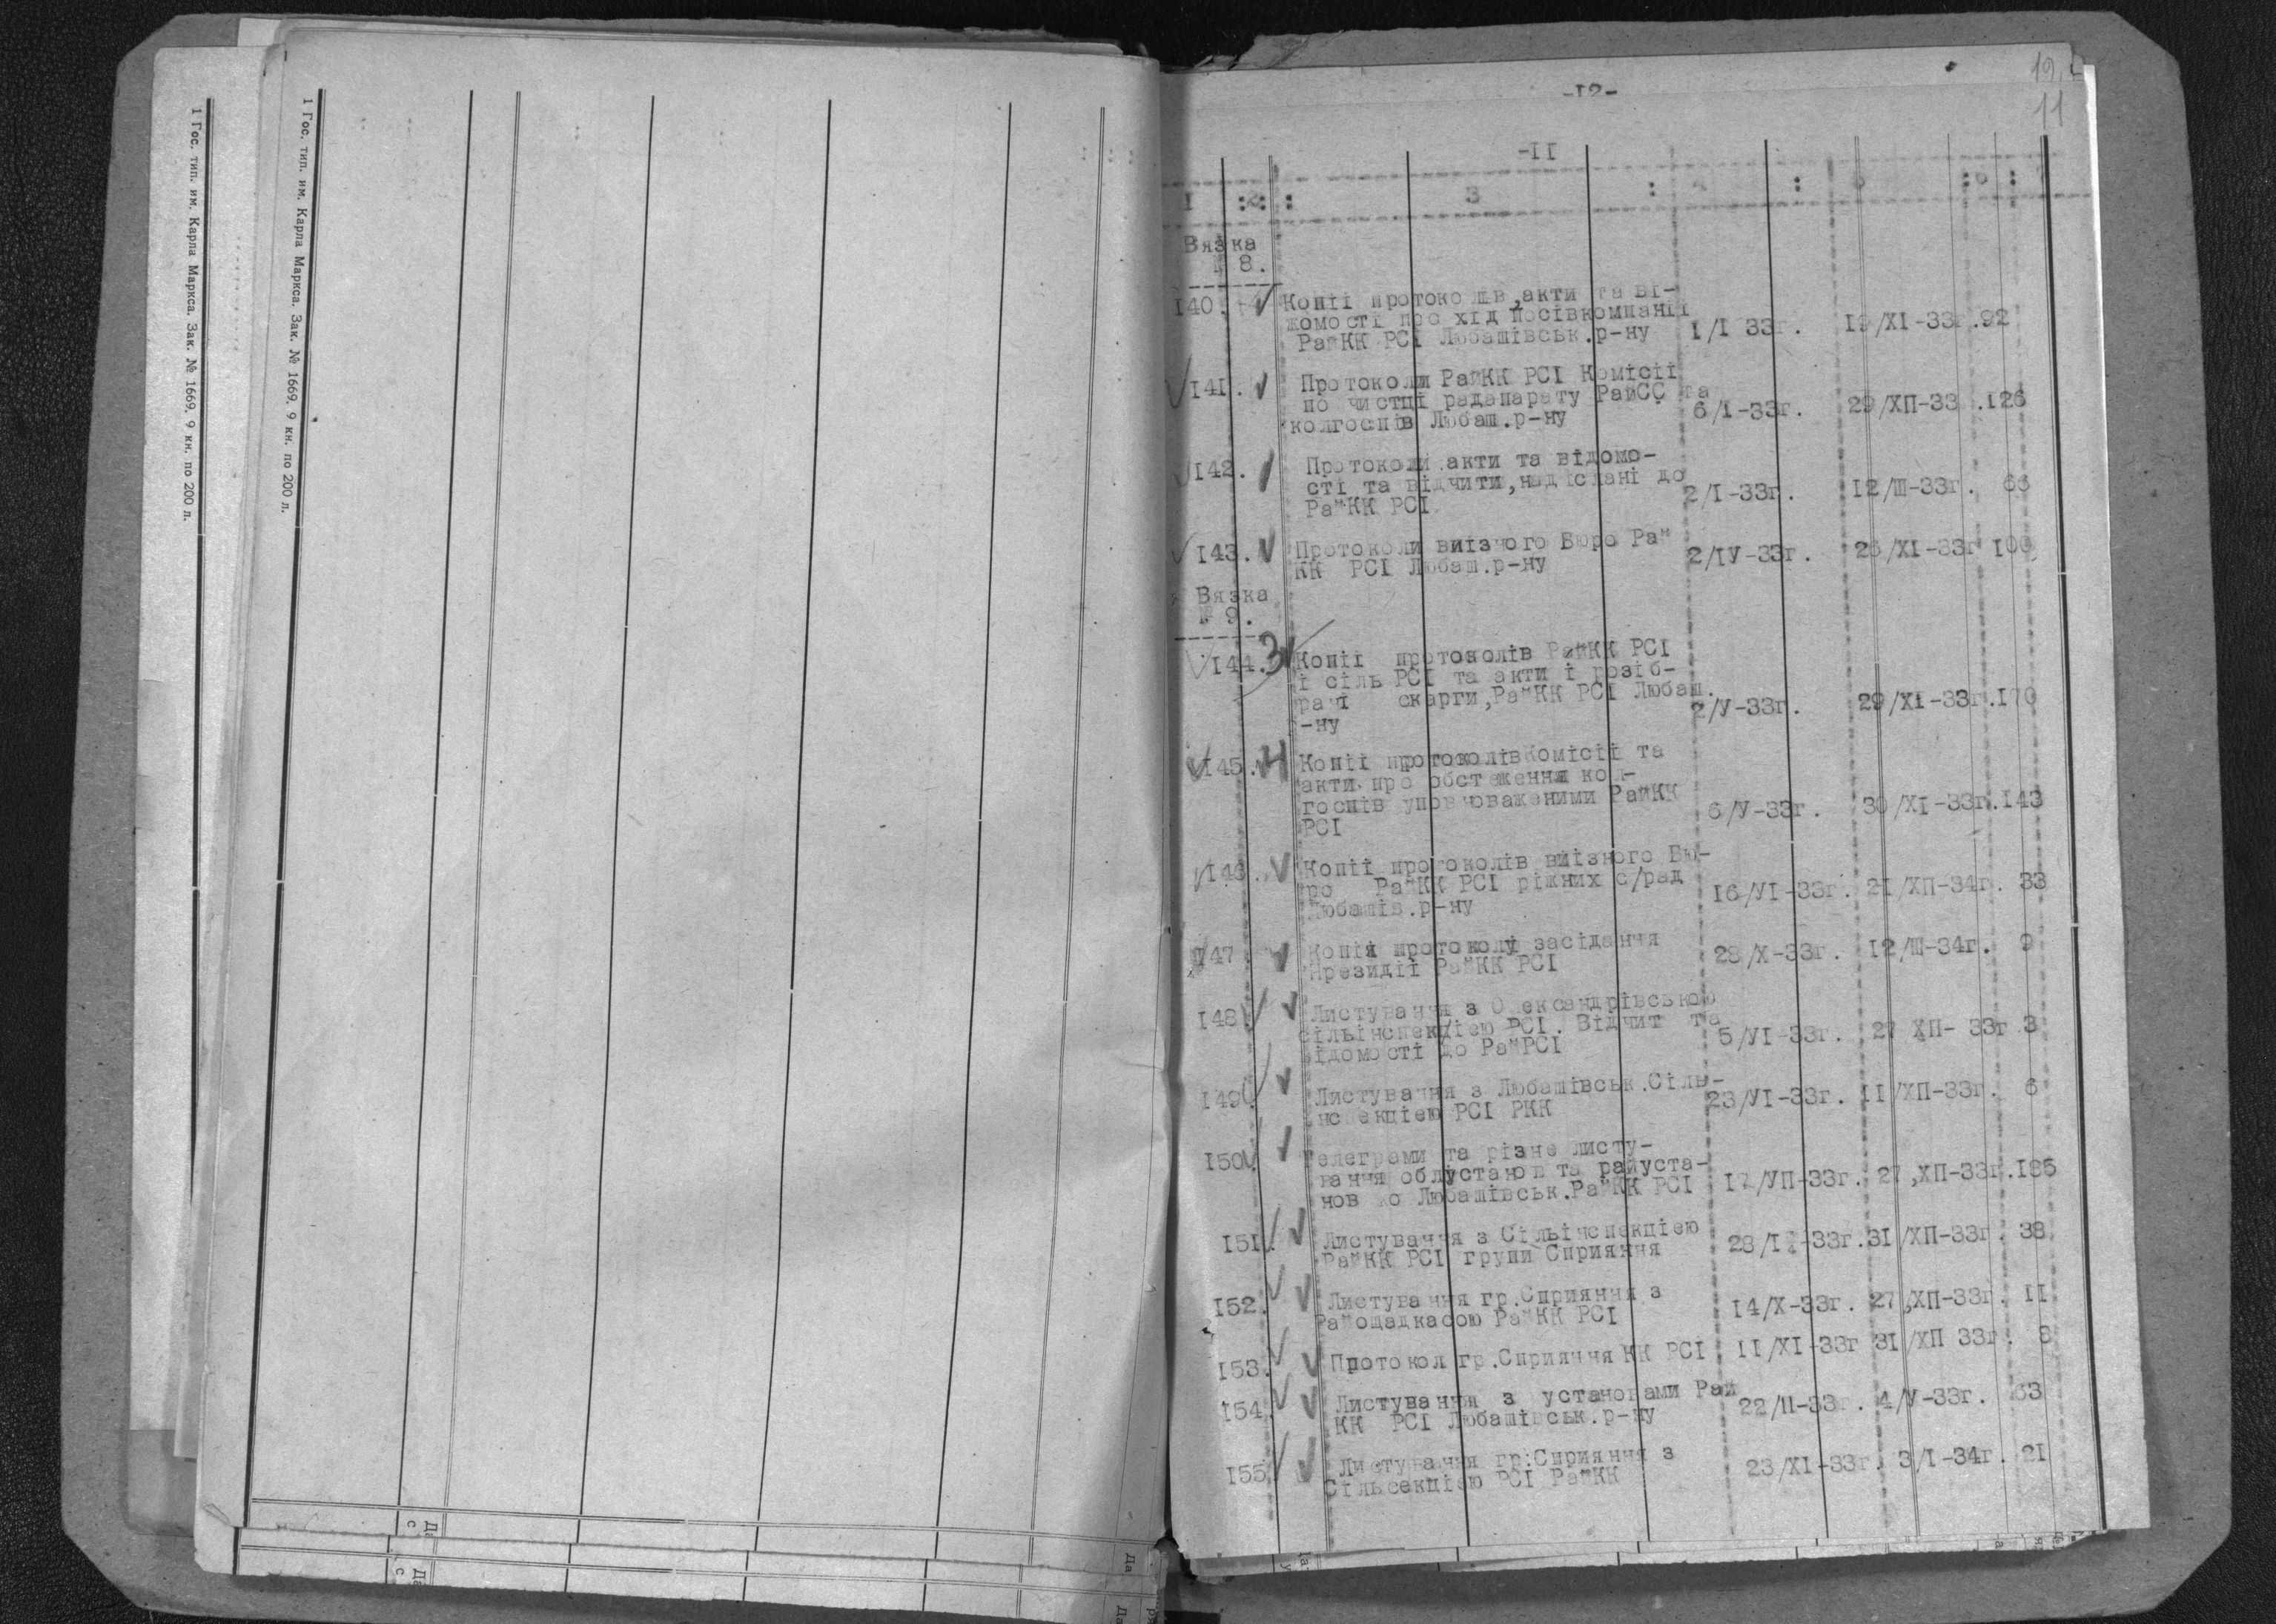 1 Гос. тип. им. Карла Маркса. Зак. № 1669. 9 кн. по 200 л.
1 Гос. тип. им. Карла Маркса. Зак. № 1669. 9 кн. по 200 л.
-12-
11
-II
I : 2 : 3 :
Вязка
№ 8.
140. Копії протоколів,акти та ві-
жомості про хід посівкомпанії
РайКК РСІ Любашівськ.р-ну 1/І 33г. 19/ХІ-33г.92
141. Протоколи РайКК РСІ Комісії
по чистці радапарату РайСС та
колгоспів Любаш.р-ну 6/І-33г. 29/ХП-33 .126
142. Протоколи акти та відомо-
сті та відчити,надіслані до
РайКК РСІ 2/І-33г. 12/Ш-33г. 66
143. Протоколи виїзного Бюро Рай
КК РСІ Любаш.р-ну 2/ІУ-33г. 26/ХІ-33г 100
Вязка
№ 9.
144. 3 Копії протоколів РайКК РСІ
і сіль РСІ та акти і розіб-
рані скарги,РайКК РСІ Любаш.
-ну 2/У-33г. 29/ХІ-33г.170
145. 4 Копії протоколівКомісії та
акти про обстеження кол-
госпів уповноваженими РайКК
РСІ 6/У-33г. 30/ХІ-33г.143
146. Копії протоколів виїзного Бю-
ро РайКК РСІ ріжних с/рад
Любашів.р-ну 16/УІ-33г. 21/ХП-34г. 33
147 Копія протоколу засідання
Президії РайКК РСІ 28/Х-33г. 12/Ш-34г. 9
148. Листування з Олександрівською
сільінспекцією РСІ. Відчит та
ідомості до РайРСІ 5/УІ-33г. 27 ХП- 33г 3
149. Листування з Любашівськ.Сіль-
нспекцією РСІ РКК 23/УІ-33г. 11/ХП-33г. 6
150. Телеграми та різне листу-
вання облустанов та райуста-
нов до Любашівськ.РайКК РСІ 17/УП-33г. 27,ХП-33г.185
151. Листування з Сільінспекцією
РайКК РСІ групи Сприяння 28/ -33г.31/ХП-33г. 38
152. Листування гр.Сприяння з
Райощадкасою РайКК РСІ 14/Х-33г. 27,ХП-33г. 11
153. Протокол гр.Сприяння КК РСІ 11/ХІ-33г 31/ХП 33г. 8
154. Листування з установами Рай
КК РСІ Любашівськ.р-ну 22/П-33г. 4/У-33г. 63
155. Листування гр.Сприяння з
Сільсекцією РСІ РайКК 23/ХІ-33г. 3/І-34г. 21